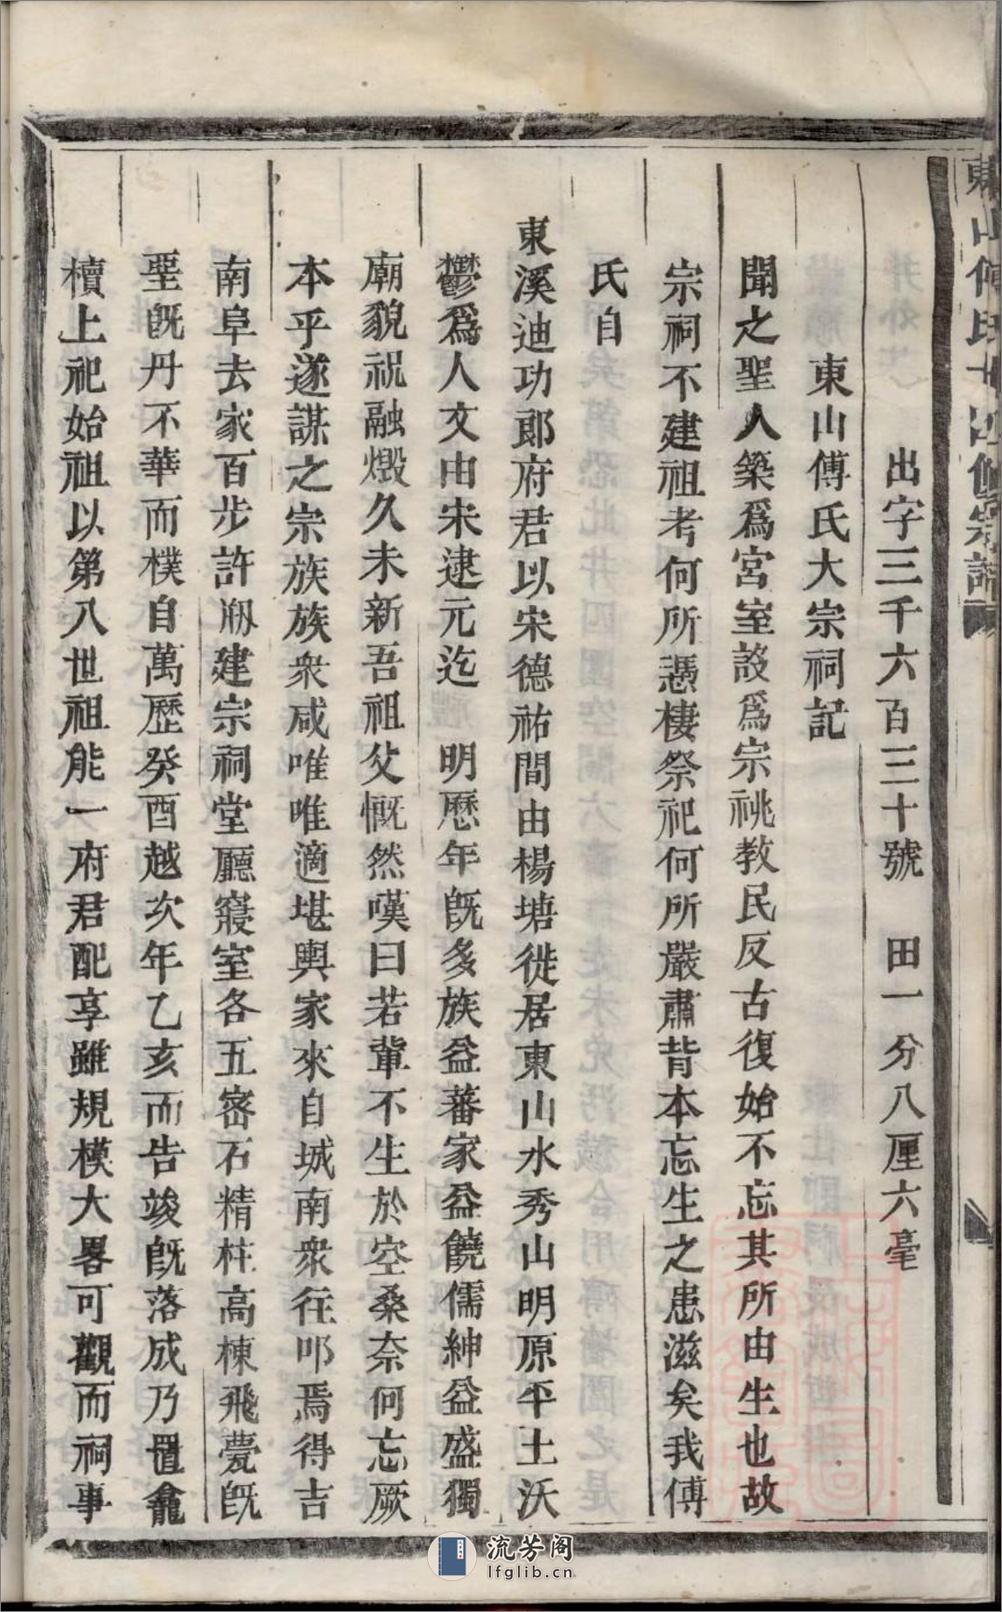 出字三千六百三十號　田一分八厘六毫
東山傅氏大宗祠記
聞之聖人築爲宮室設爲宗祧教民反古復始不忘其所由生也故
宗祠不建祖考何所憑棲祭祀何所嚴肅背本忘生之患滋矣我傅
氏自
東溪迪功郎府君以宋德祐間由楊塘徙居東山水秀山明原平土沃
鬱爲人文由宋逮元迄　明歷年旣多族益蕃家益饒儒紳益盛獨
廟貌祝融燬久未新吾祖父慨然嘆曰若輩不生於空桑奈何忘厥
本乎遂謀之宗族族衆咸唯唯適堪輿家來自城南衆往叩焉得吉
南阜去家百步許刱建宗祠堂廳寢室各五密石精柱高棟飛甍旣
堊旣丹不華而樸自萬歷癸酉越次年乙亥而告竣旣落成乃置龕
櫝上祀始祖以第八世祖能一府君配享雖規模大畧可觀而祠事
流芳阁
lfglib.cn